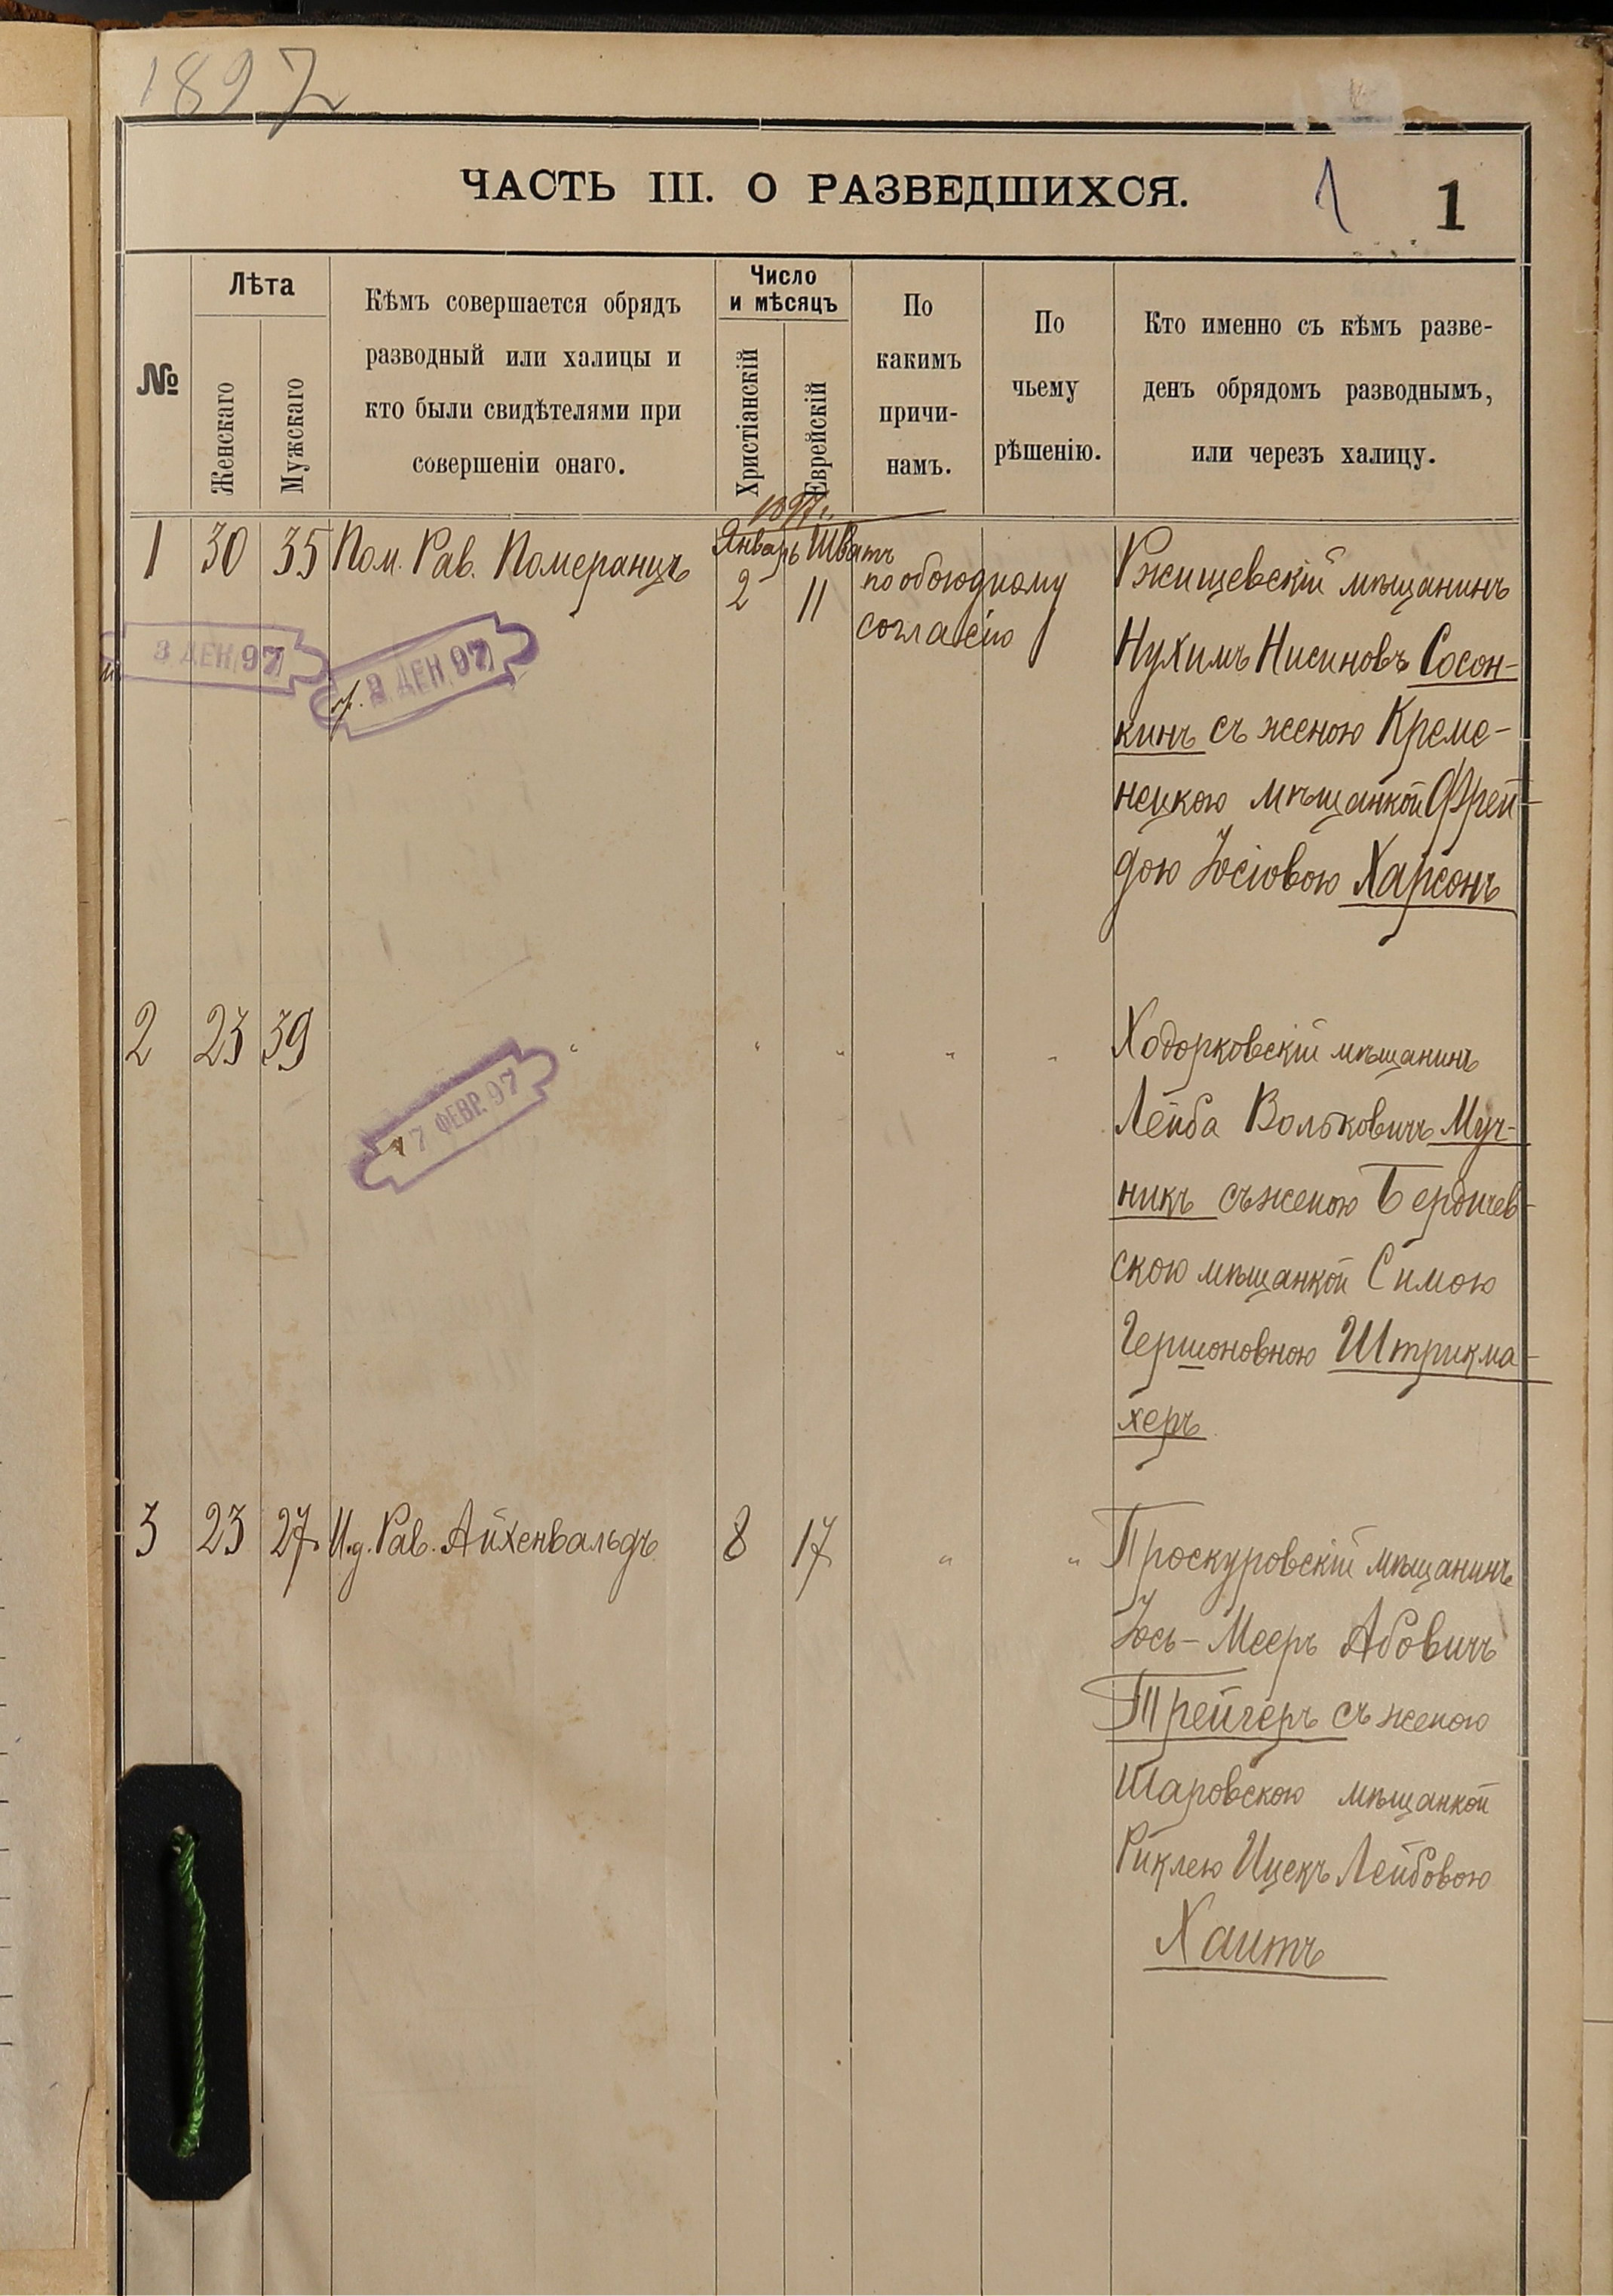 1897
ЧАСТЬ III. О РАЗВЕДШИХСЯ.
1
1
№
Лѣта
Женскаго
Мужскаго
Кѣмъ совершается обрядъ
разводный или халицы и
кто были свидѣтелями при
совершеніи онаго.
Число
и мѣсяцъ
Христіанскій
Еврейскій
По
какимъ
причи-
намъ.
По
чьему
рѣшенію.
Кто именно съ кѣмъ разве-
денъ обрядомъ разводнымъ,
или черезъ халицу.
1897 г.
Январь Шватъ
1 30 35 Пом. Рав. Померанцъ 2 11 по обоюдному
согласію
Ржищевскій мѣщанинъ
Нухимъ Нисиновъ Сосон-
кинъ съ женою Креме-
нецкою мѣщанкой Фрей-
дою Іосіовою Харсонъ
3 ДЕК. 97
3 ДЕК. 97
2 23 39 " " " " "
Ходорковскій мѣщанинъ
Лейба Вольковичъ Муч-
никъ съ женою Бердичев-
скою мѣщанкой Симою
Гершоновною Штрикма-
херъ
17 ФЕВР. 97
3 23 27 И.д. Рав. Айхенвальдъ 8 17 " "
Проскуровскій мѣщанинъ
Іось-Мееръ Абовичъ
Трейгеръ съ женою
Шаровскою мѣщанкой
Риклею Ицекъ Лейбовою
Хаитъ